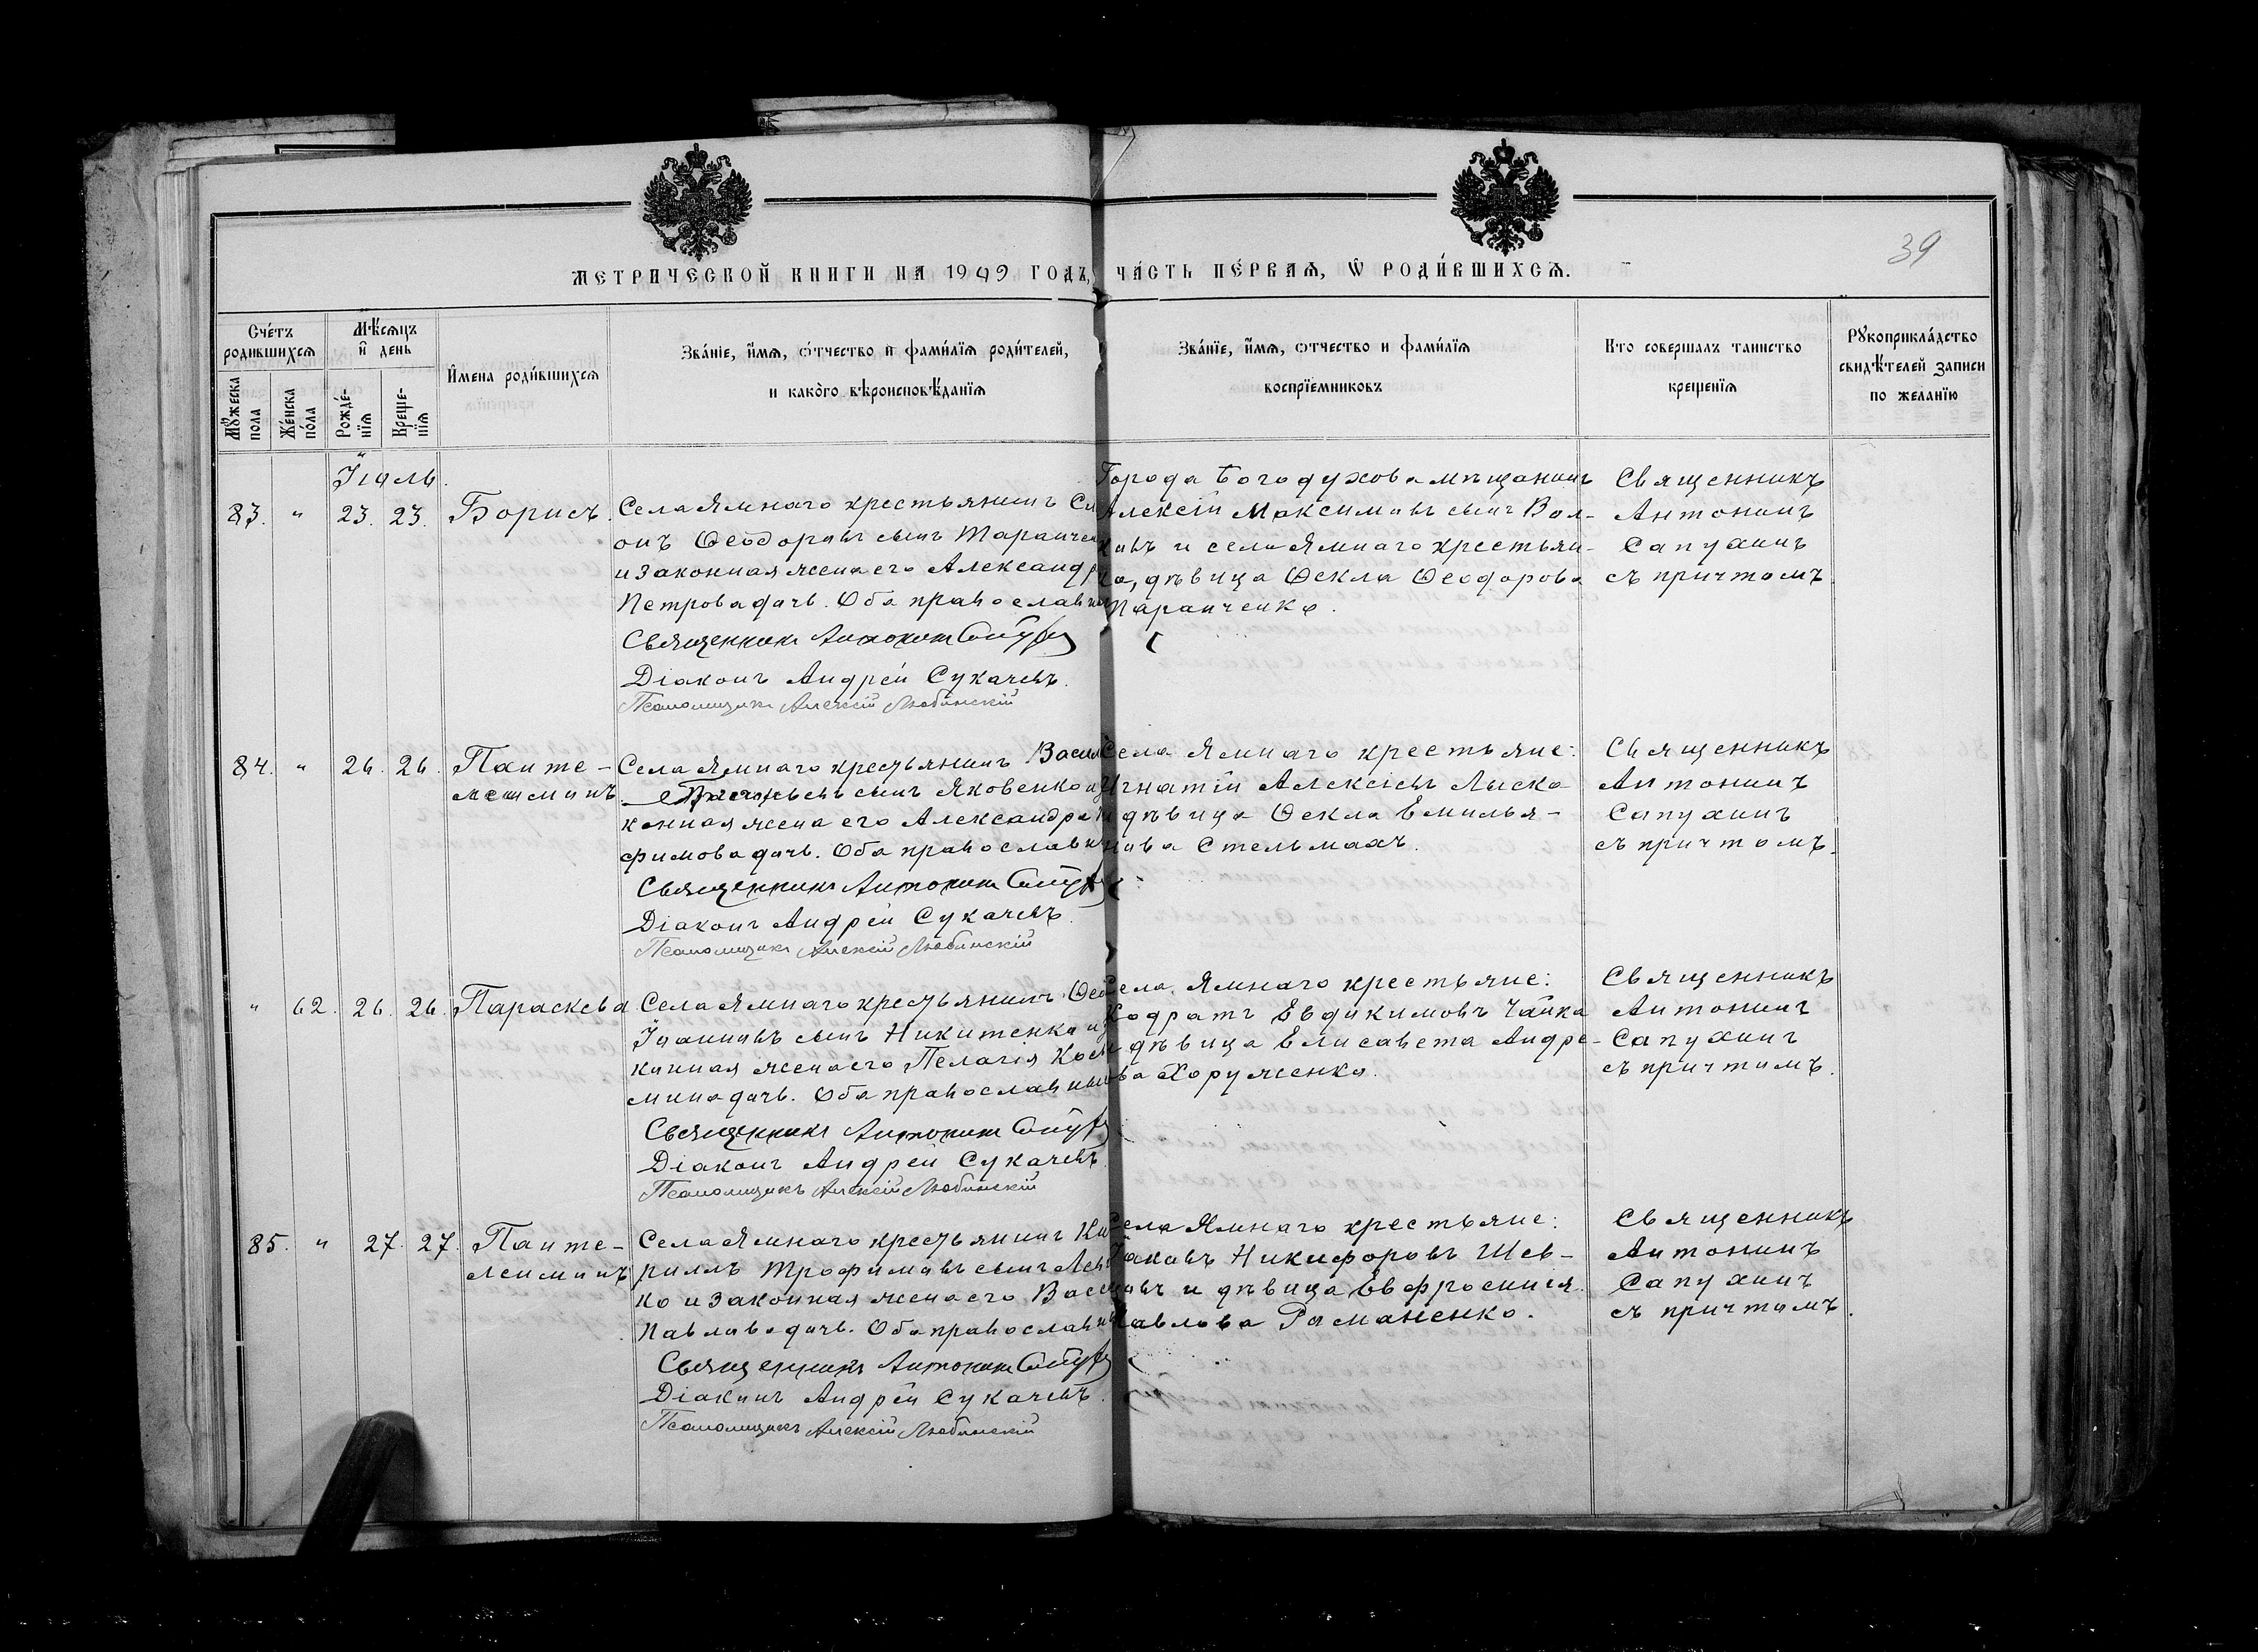 39
МЕТРИЧЕСКОЙ КНИГИ НА 1909 ГОДЪ, ЧА́СТЬ ПЕ́РВАѦ, Ѡ РОДИ́ВШИХСѦ.
Сче́тъ родившихсѧ
Мꙋжеска пола
Же́нска по́ла
Мѣ́сѧцъ и҆ день
Рожде́-нїѧ
Креще-нїѧ
И҆мена роди́вшихсѧ
Зва́нїе, и҆́мѧ, ѻ҆́тчество и҆ фами́лїѧ роди́телей,
и како́го вѣроисповѣ́данїѧ
Зва́нїе, и҆́мѧ, ѻтчество и фами́лїѧ
воспрїемниковъ
Кто совершалъ таинство
крещенїѧ
Рꙋкоприкла́дство
свидѣ́телей записи
по желанїю
Іюль.
83. " 23. 23. Борисъ.
Села Ямнаго крестьянинъ Си
онъ Ѳеодоровъ сынъ Таранчен
и законная жена его Александр
Петрова дочь. Оба православн
Священникъ Антонин
Діаконъ Андрей Сукачевъ.
Псаломщикъ Алексій Любинскій
Города Богодухова мѣщанинъ
Алексій Максимовъ сынъ Вол-
ковъ и села Ямнаго крестьян-
ка, дѣвица Ѳекла Ѳеодорова
Таранченко.
Священникъ
Антонинъ
Сапухинъ
съ причтомъ.
84. " 26. 26. Панте-
леимонъ
Села Ямнаго крестьянинъ Васил
сынъ Яковенко и
конная жена его Александра
фимова дочь. Оба православн
Священникъ Антонин
Діаконъ Андрей Сукачевъ.
Псаломщикъ Алексій Любинскій
Села Ямнаго крестьяне:
Игнатій Алексіевъ Лыско
и дѣвица Ѳекла Емилья-
нова Стельмахъ.
Священникъ
Антонинъ
Сапухинъ
съ причтомъ.
" 62. 26. 26. Параскева
Села Ямнаго крестьянинъ Ѳео
Іоанновъ сынъ Никитенко и
конная жена его Пелагія Косм
мина дочь. Оба православны
Священникъ Антонин
Діаконъ Андрей Сукачевъ
Псаломщикъ Алексій Любинскій
Села Ямнаго крестьяне:
Кодратъ Евдокимовъ Чайка
и дѣвица Елисавета Андре-
ва Хоруженко.
Священникъ
Антонинъ
Сапухинъ
съ причтомъ.
85. " 27. 27. Панте-
леимонъ
Села Ямнаго крестьянинъ Ки
риллъ Трофимовъ сынъ
ко и законная жена его Васс
Павлова дочь. Оба православн
Священникъ Антонин
Діаконъ Андрей Сукачевъ.
Псаломщикъ Алексій Любинскій
Села Ямнаго крестьяне:
Іаковъ Никифоровъ Шев-
и дѣвица Евфросинія
Павлова Романенко.
Священникъ
Антонинъ
Сапухинъ
съ причтомъ.